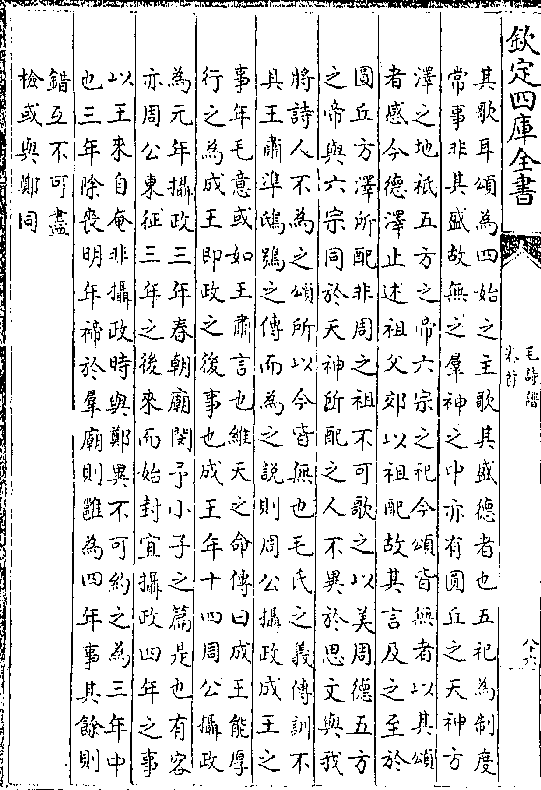 欽定四庫全書
毛詩譜
八六
其歌耳頌為四始之主歌其盛德者也五祀為制度
常事非其盛故無之羣神之中亦有圓丘之天神方
澤之地祇五方之帝六宗之祀今頌皆無者以其頌
者感今德澤止述祖父郊以祖配故其言及之至於
圓丘方澤所配非周之祖不可歌之以美周德五方
之帝與六宗同於天神所配之人不異於思文與我
將詩人不為之頌所以今皆無也毛氏之義傳訓不
具王肅準鴟鴞之傳而為之説則周公攝政成王之
事年毛意或如王肅言也維天之命傳曰成王能厚
行之為成王即政之後事也成王年十四周公攝政
為元年攝政三年春朝廟閔予小子之篇是也有客
亦周公東征三年之後來而始封宜攝政四年之事
以王來自奄非攝政時與鄭異不可約之為三年中
也三年除喪明年禘於羣廟則雝為四年事其餘則
錯互不可盡
檢或與鄭同